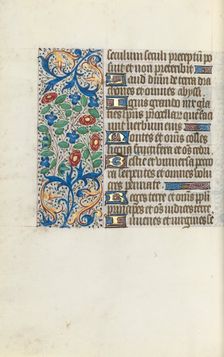 seculum seculi preceptum po
suit et non preteribit
Laudate dominum de terra dra
cones et omnes abyssi
Ignis grando nix gla
cies spiritus procellarum que faciunt
verbum eius
Montes et omnes colles
ligna fructifera et omnes cedri
Bestie et universa pecora
serpentes et volu
cres pennate
Reges terre et omnes populi
principes et omnes iudices terre
Iuvenes et virgines